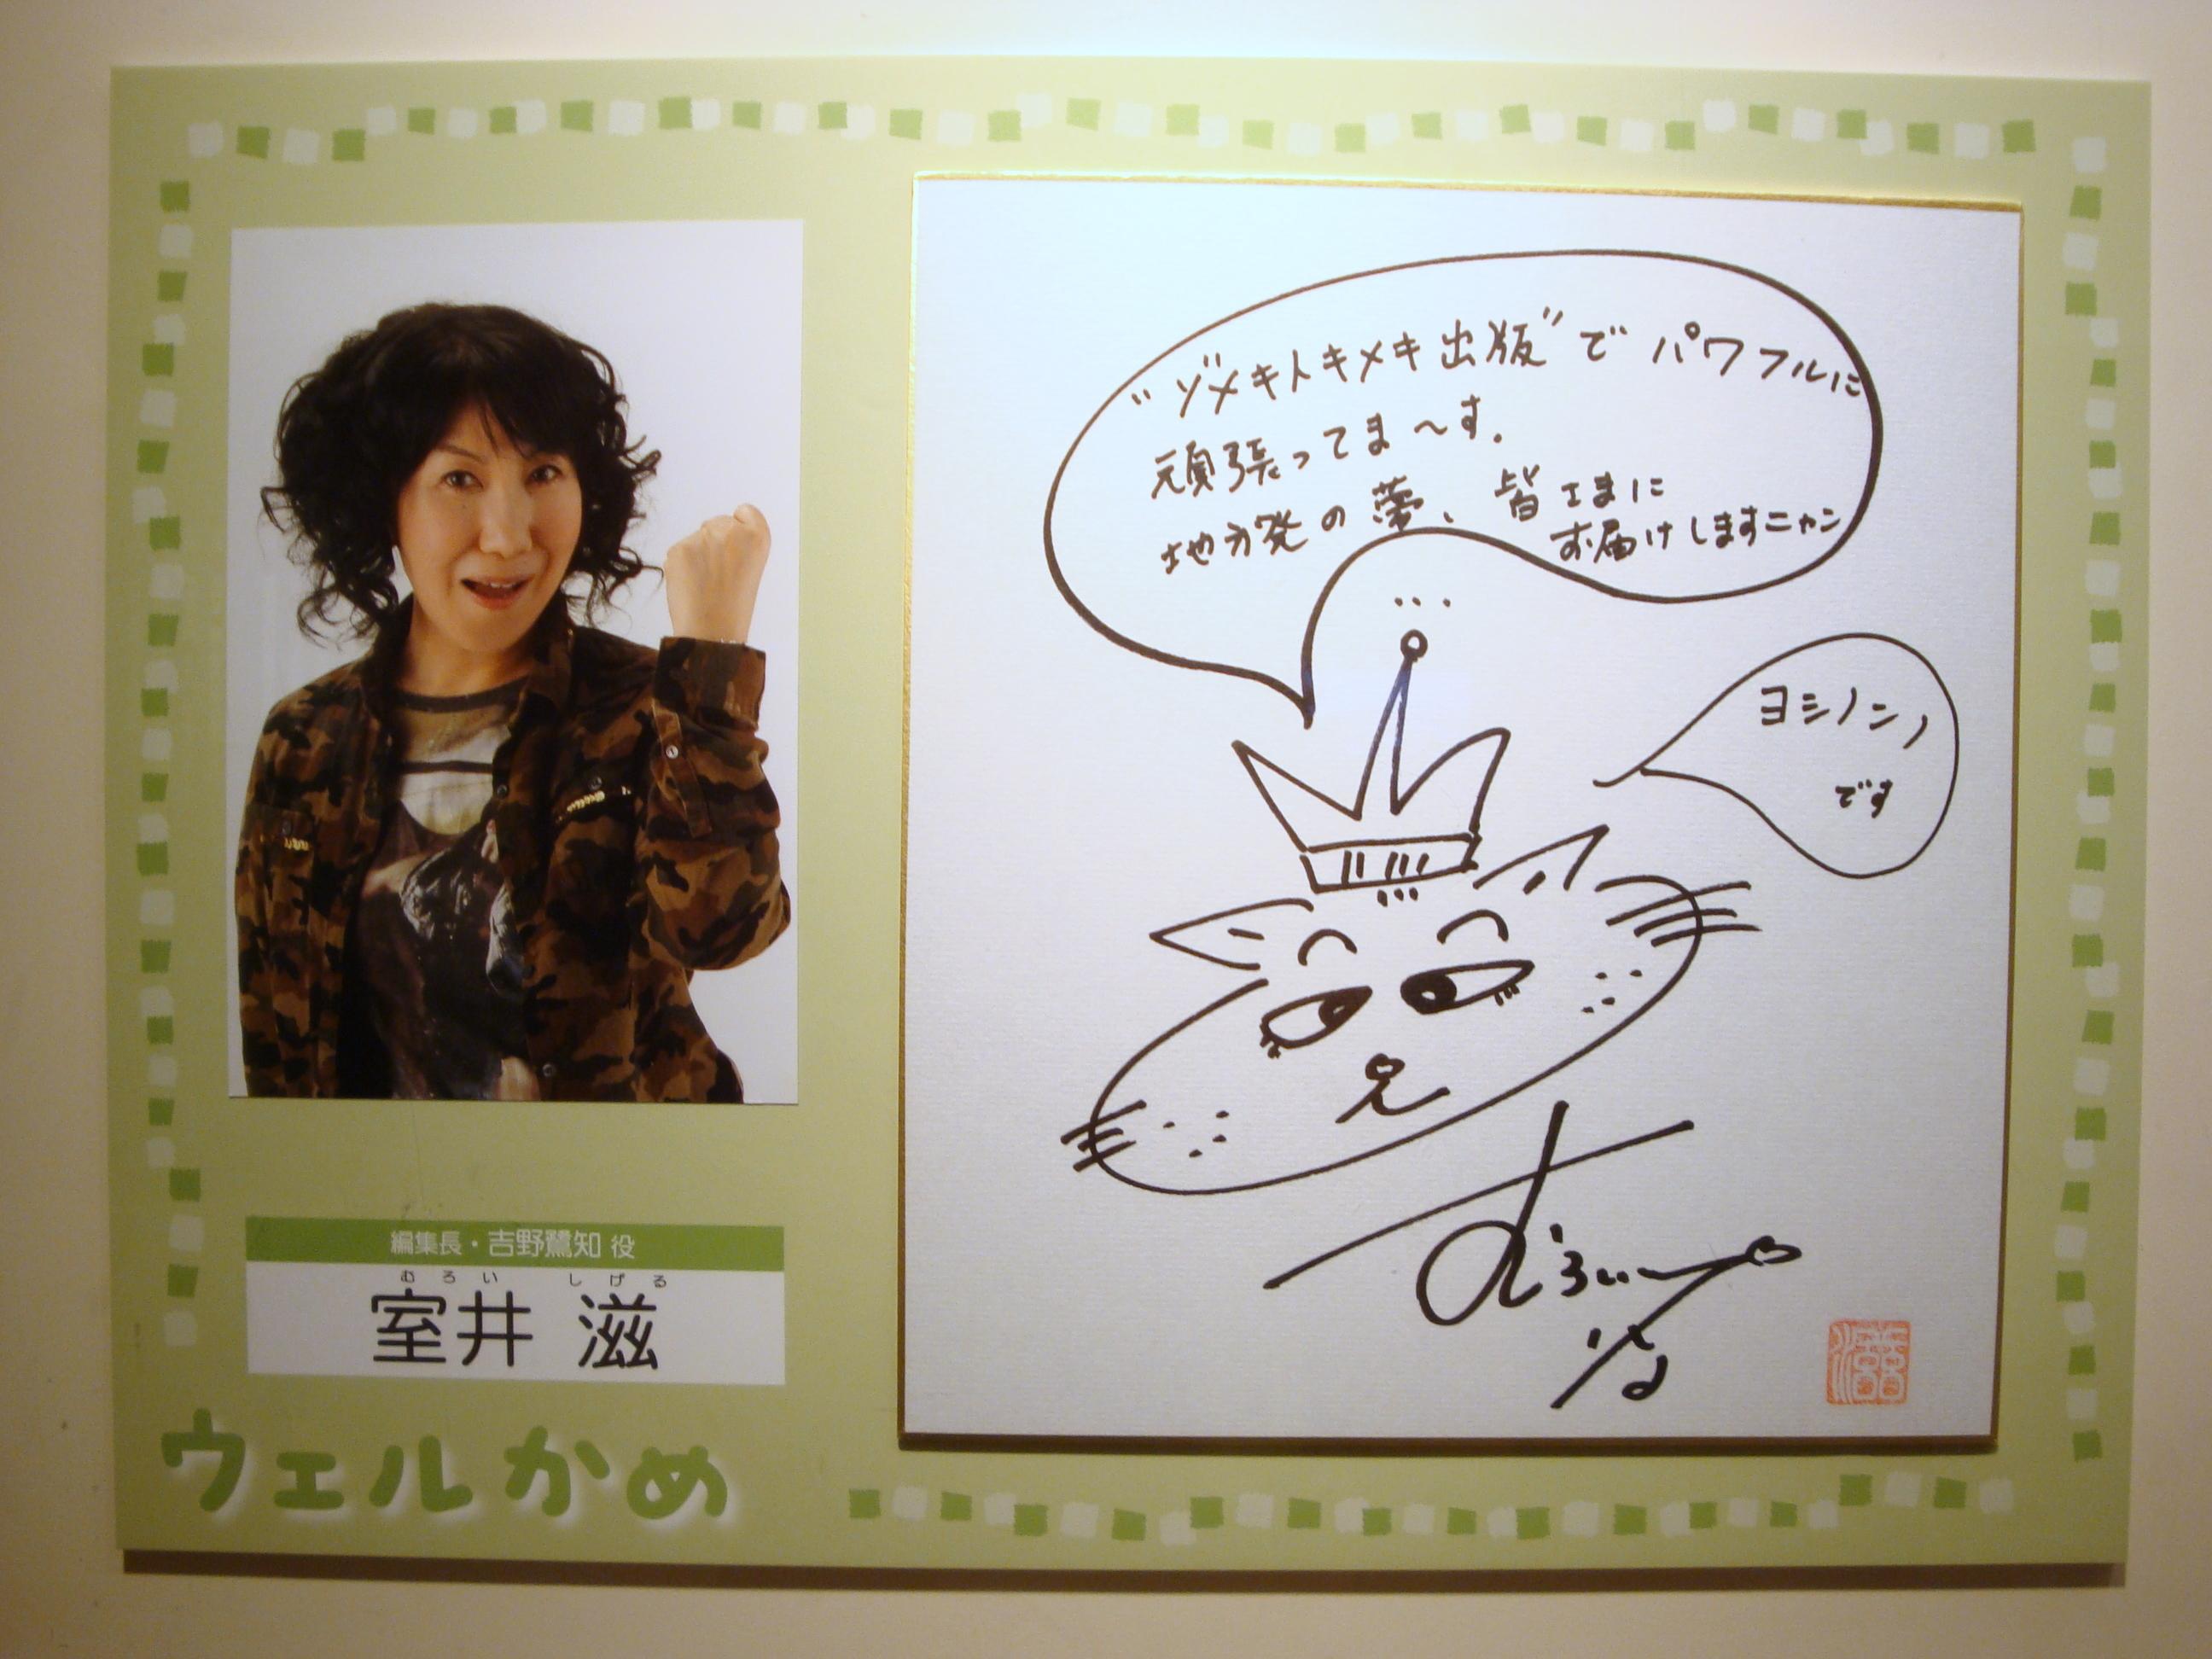 "ゾメキトキメキ出版"で パワフルに
頑張ってま〜す。
地方発の夢、皆さまに
お届けしますニャン
ヨシノン、
です
編集長・吉野鷺知 役
むろい しげる
室井 滋
むろい
ウェルかめ